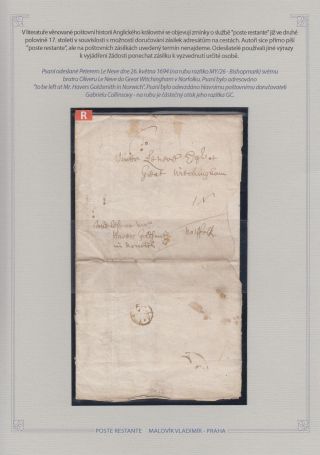 V literatuře věnované poštovní historii Anglického království se objevují zmínky o službě "poste restante" již ve druhé
polovině 17. století v souvislosti s možností doručování zásilek adresátům na cestách. Autoři sice přímo píší
"poste restante", ale na poštovních zásilkách uvedený termín nenajdeme. Odesílatelé používali jiné výrazy
k vyjádření žádosti ponechat zásilku k vyzvednutí určité osobě.
Psaní odeslané Peterem Le Neve dne 26. května 1694 (na rubu razítko MY/26 - Bishopmark) svému
bratru Oliveru Le Neve do Great Witchingham v Norfolku. Psaní bylo adresováno
"to be left at Mr. Havers Goldsmith in Norwich". Psaní bylo odevzdáno hlavnímu poštovnímu doručovateli
Gabrielu - na rubu je částečný otisk jeho razítka GC.
R
Great Witchingham
in Norwich
Norfolk
POSTE RESTANTE MALOVÍK VLADIMÍR - PRAHA